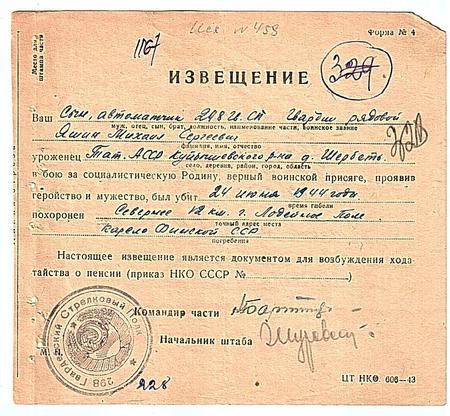 Исх. № 458
Форма № 4
1167
Место для
штампа части
329.
ИЗВЕЩЕНИЕ
Ваш Сын, автоматчик 298 Гв. СП Гвардии рядовой
муж, отец, сын, брат, должность, наименование части, воинское звание
Яшин Михаил Сергеевич
фамилия, имя, отчество
уроженец Тат. АССР Куйбышевского р-на д. Шербеть
село, деревня, район, город, область
в бою за социалистическую Родину, верный воинской присяге, проявив
геройство и мужество, был убит 24 июня 1944 года
время гибели
похоронен Севернее 12 км. г. Лодейное Поле
точный адрес места
Карело Финской ССР
погребения
Настоящее извещение является документом для возбуждения хода-
тайства о пенсии (приказ НКО СССР №
)
Командир части
Начальник штаба
М. П.
298 Гвардейский Стрелковый Полк
228
ЦТ НКО. 606—43